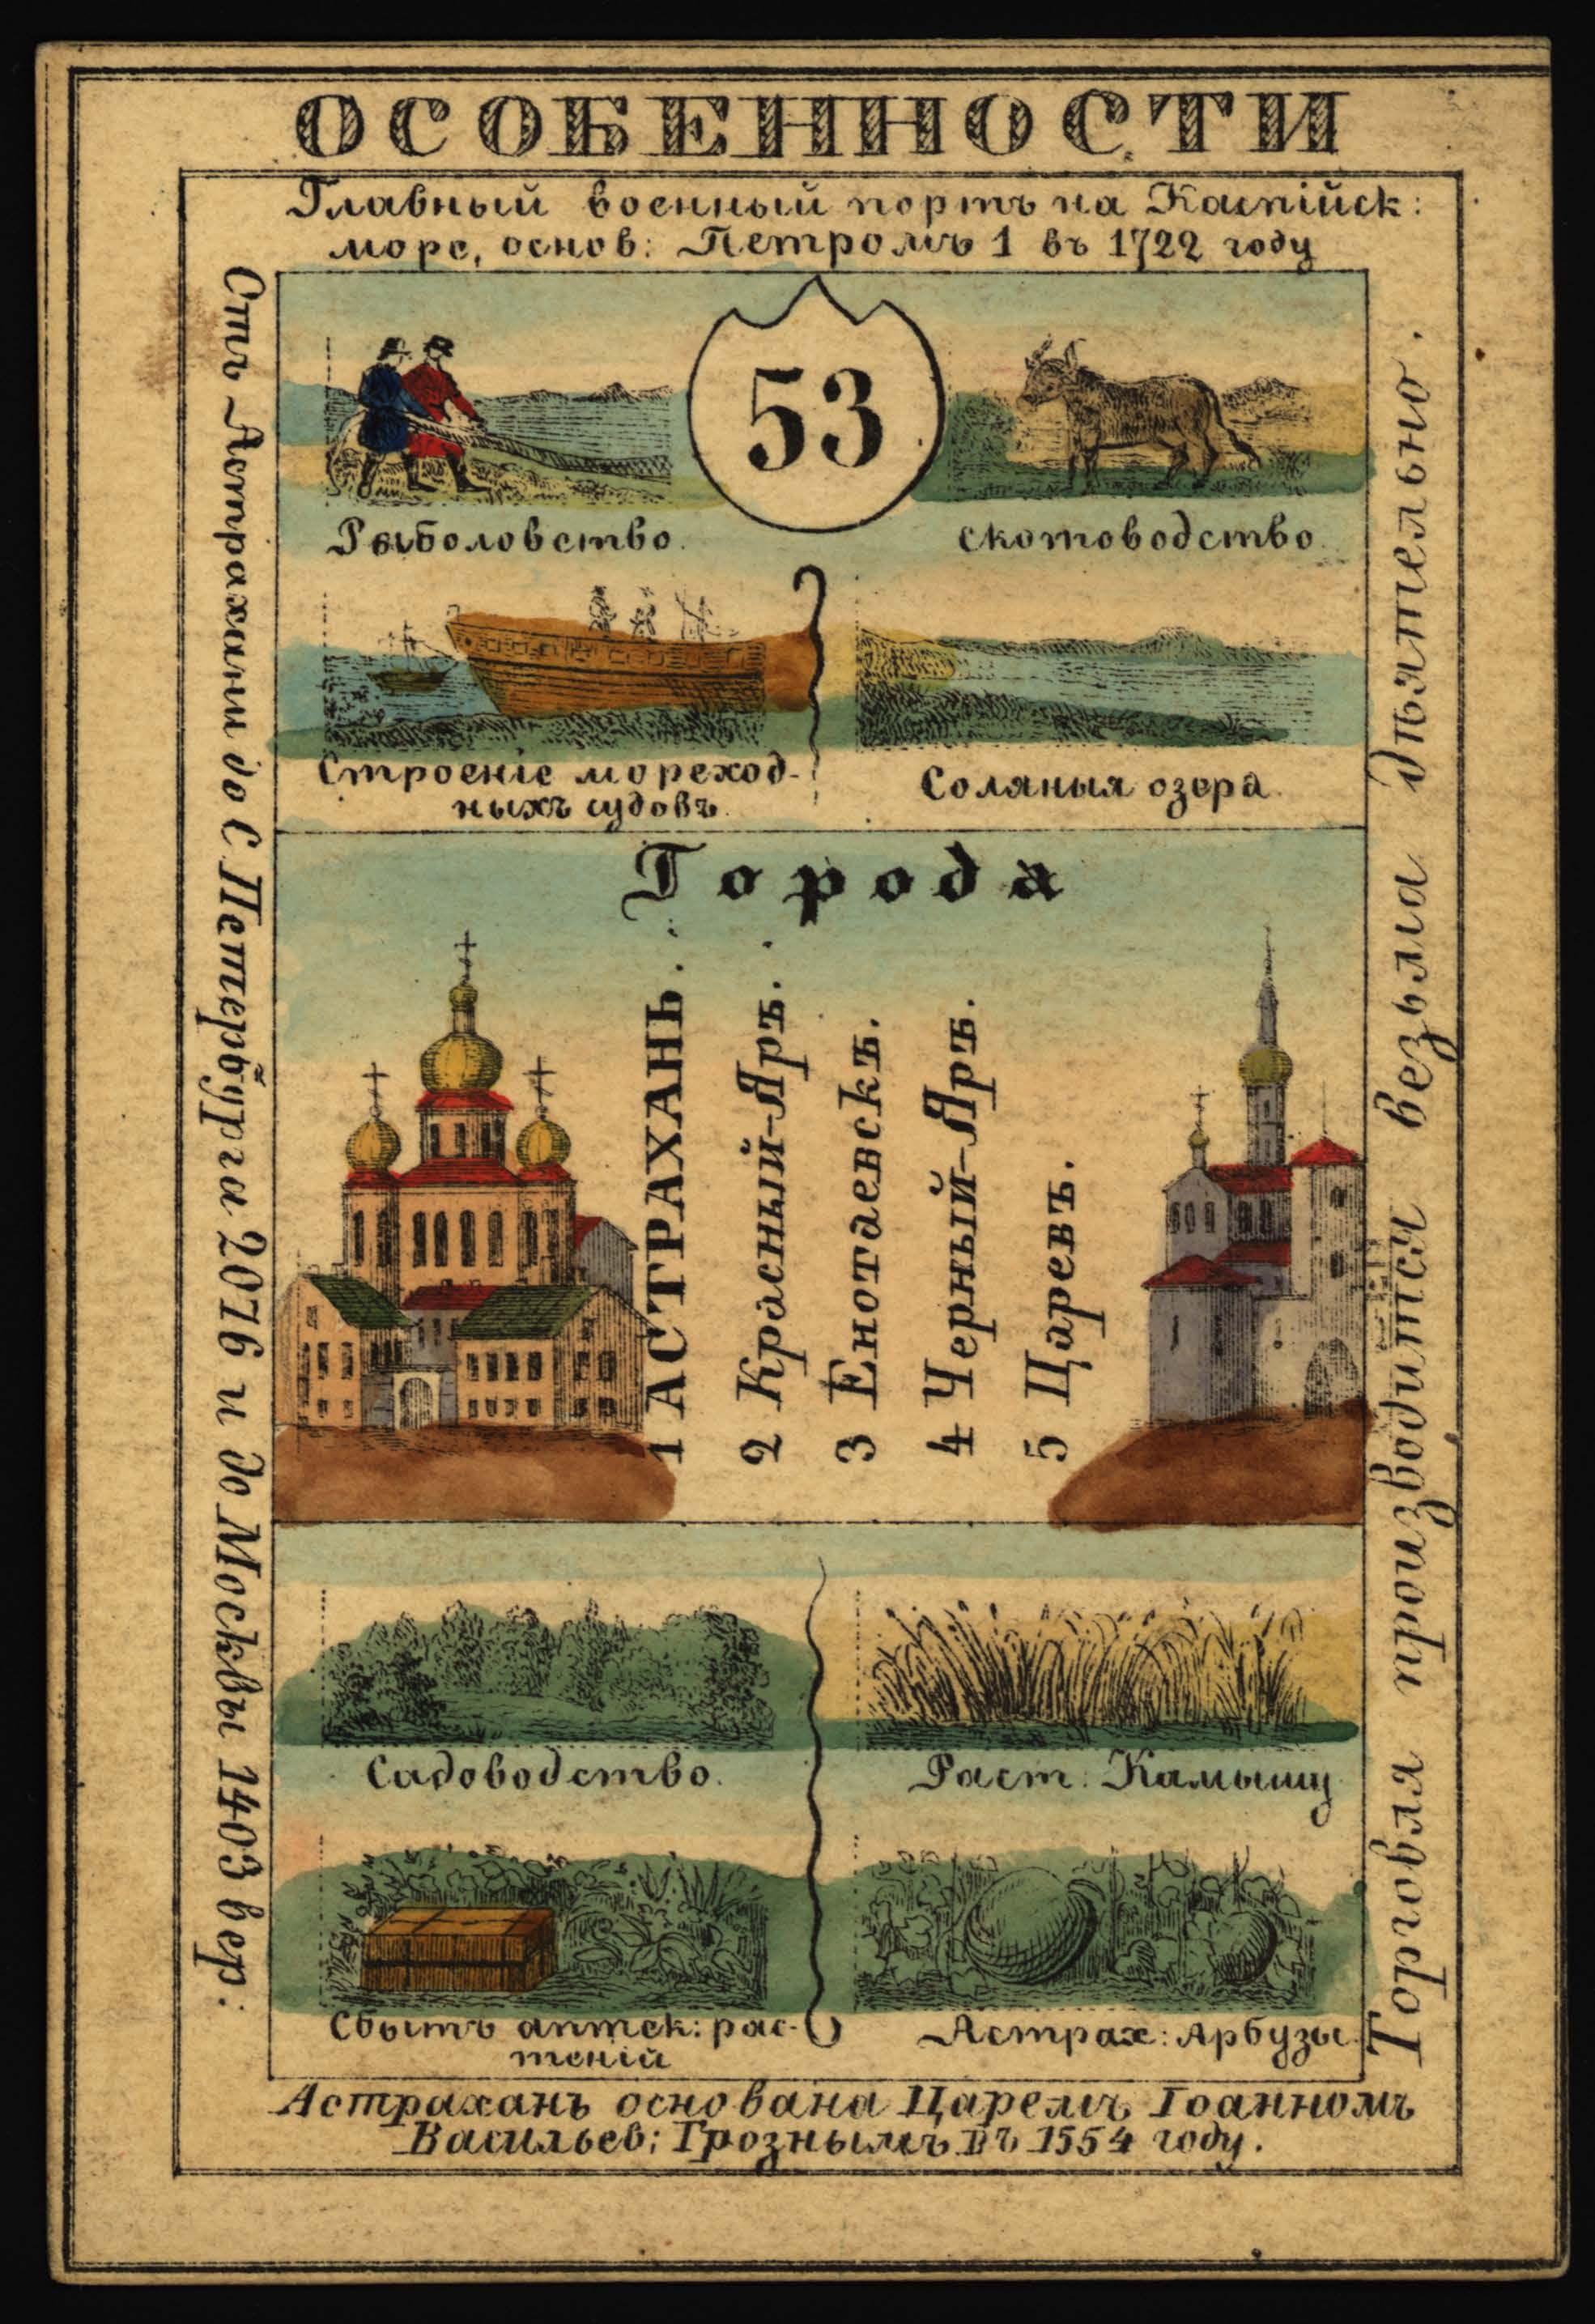 ОСОБЕННОСТИ
Главный военный портъ на Каспійск:
море, основ: Петромъ 1 въ 1722 году
Отъ Астрахани до С Петербурга 2076 и до Москвы 1403 вер:
53
Рыболовство.
Скотоводство.
Строеніе мореход-
ныхъ судовъ.
Соляныя озера.
Города
1 АСТРАХАНЬ.
2 Красный-Яръ.
3 Енотаевскъ.
4 Черный-Яръ.
5 Царевъ.
Садоводство.
Раст: Камышу
Сбытъ аптек: рас-
теній
Астрах: Арбузы.
Торговля производится везьма дѣятельно.
Астрахань основана Царемъ Іоанномъ
Васильев: Грознымъ въ 1554 году.